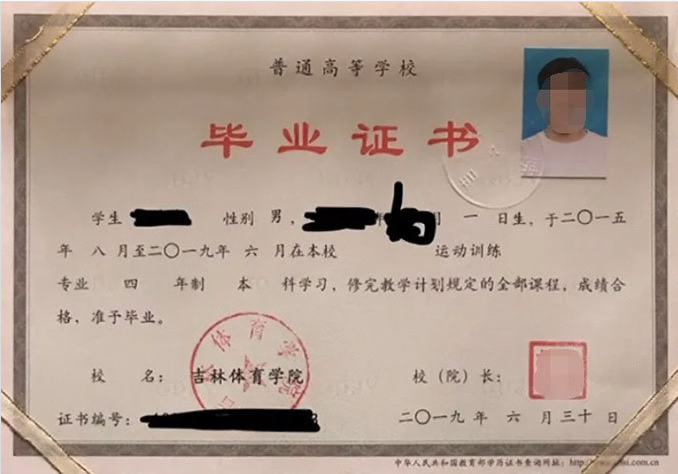 普通高等学校
毕业证书
学生 性别 男， 月 一 日生，于二〇一五
年 八 月至二〇一九年 六 月在本校 运动训练
专业 四 年制 本 科学习，修完教学计划规定的全部课程，成绩合
格，准予毕业。
校 名： 吉林体育学院 校（院）长：
证书编号： 二〇一九 年 六 月三十日
中华人民共和国教育部学历证书查询网址：